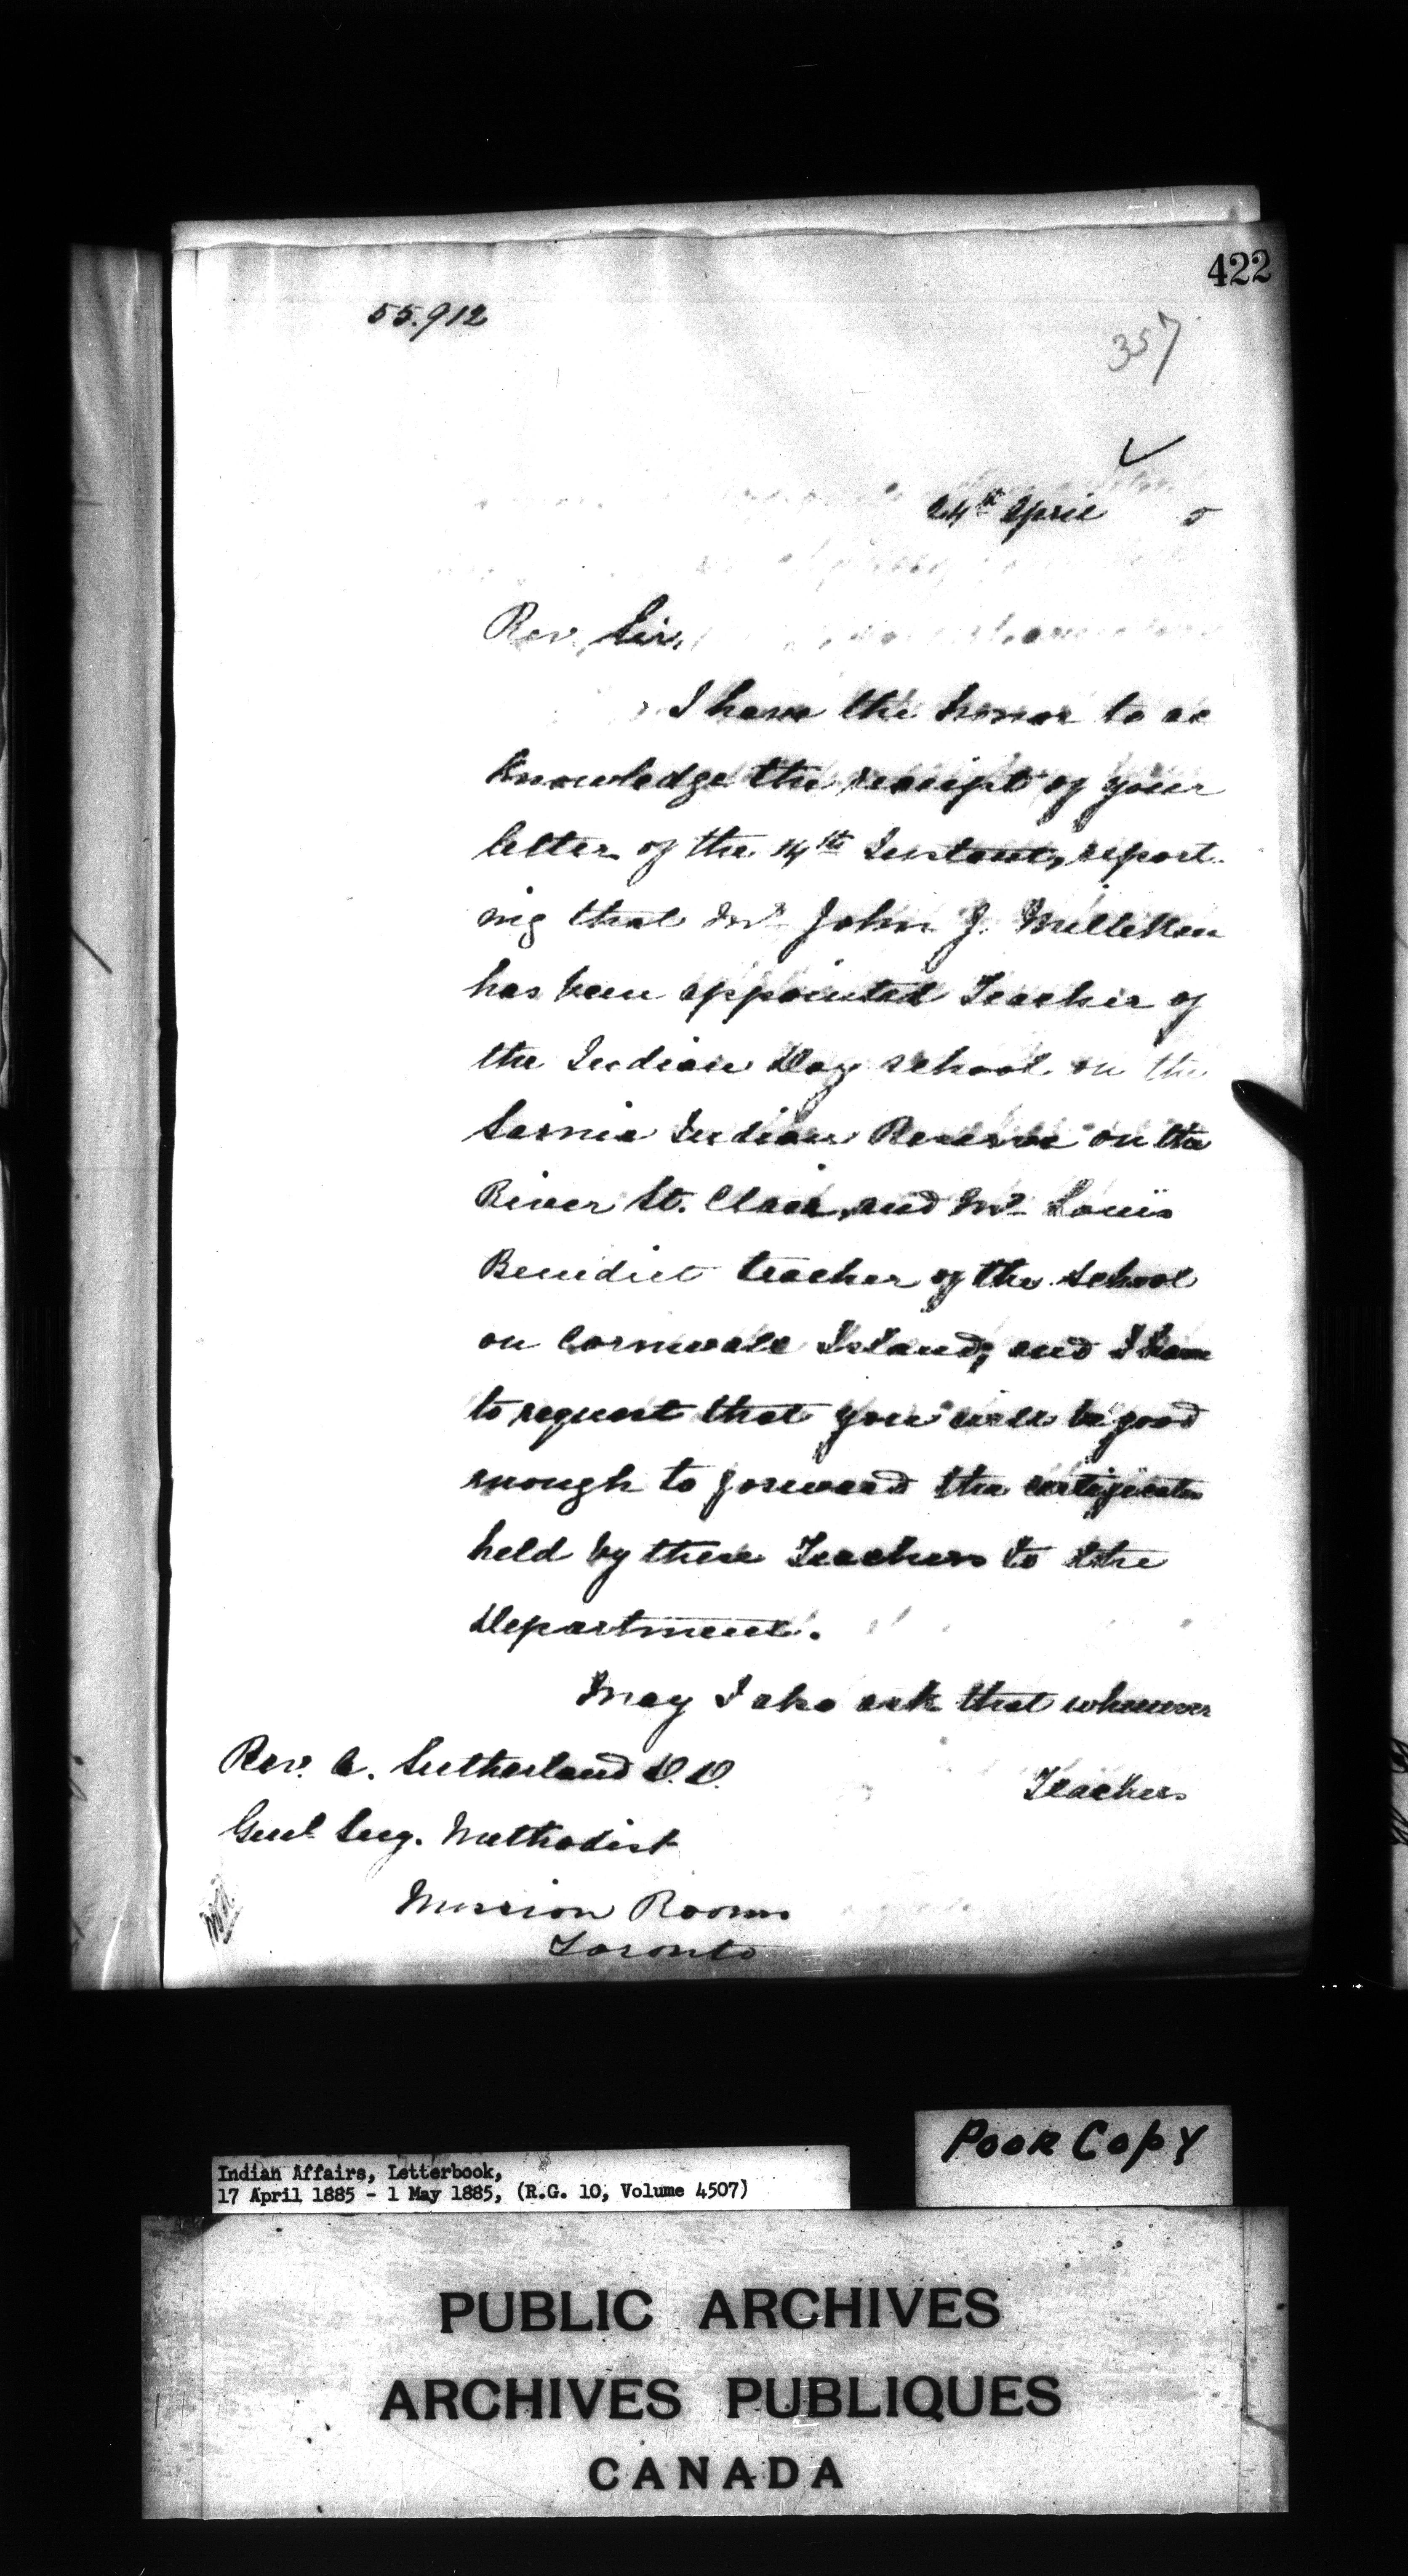 422
55.912
357
24th April 5
Rev. Sir,
I have the honor to ac
knowledge the receipt of your
letter of the 14th Instant, report-
ing that Mr. John J. Milliken
has been appointed Teacher of
the Indian Day school on the
Sarnia Indian Reserve on the
River St. Clair, and Mr. Louis
Benedict teacher of the School
on Cornwall Island; and I have
to request that you will be good
enough to forward the certificates
held by these Teachers to the
Department.
May I also ask that whenever
Teachers
Rev. A. Sutherland D.D.
Genl. Secy. Methodist
Mission Rooms
Toronto
Poor Copy
Indian Affairs, Letterbook,
17 April 1885 - 1 May 1885, (R.G. 10, Volume 4507)
PUBLIC ARCHIVES
ARCHIVES PUBLIQUES
CANADA